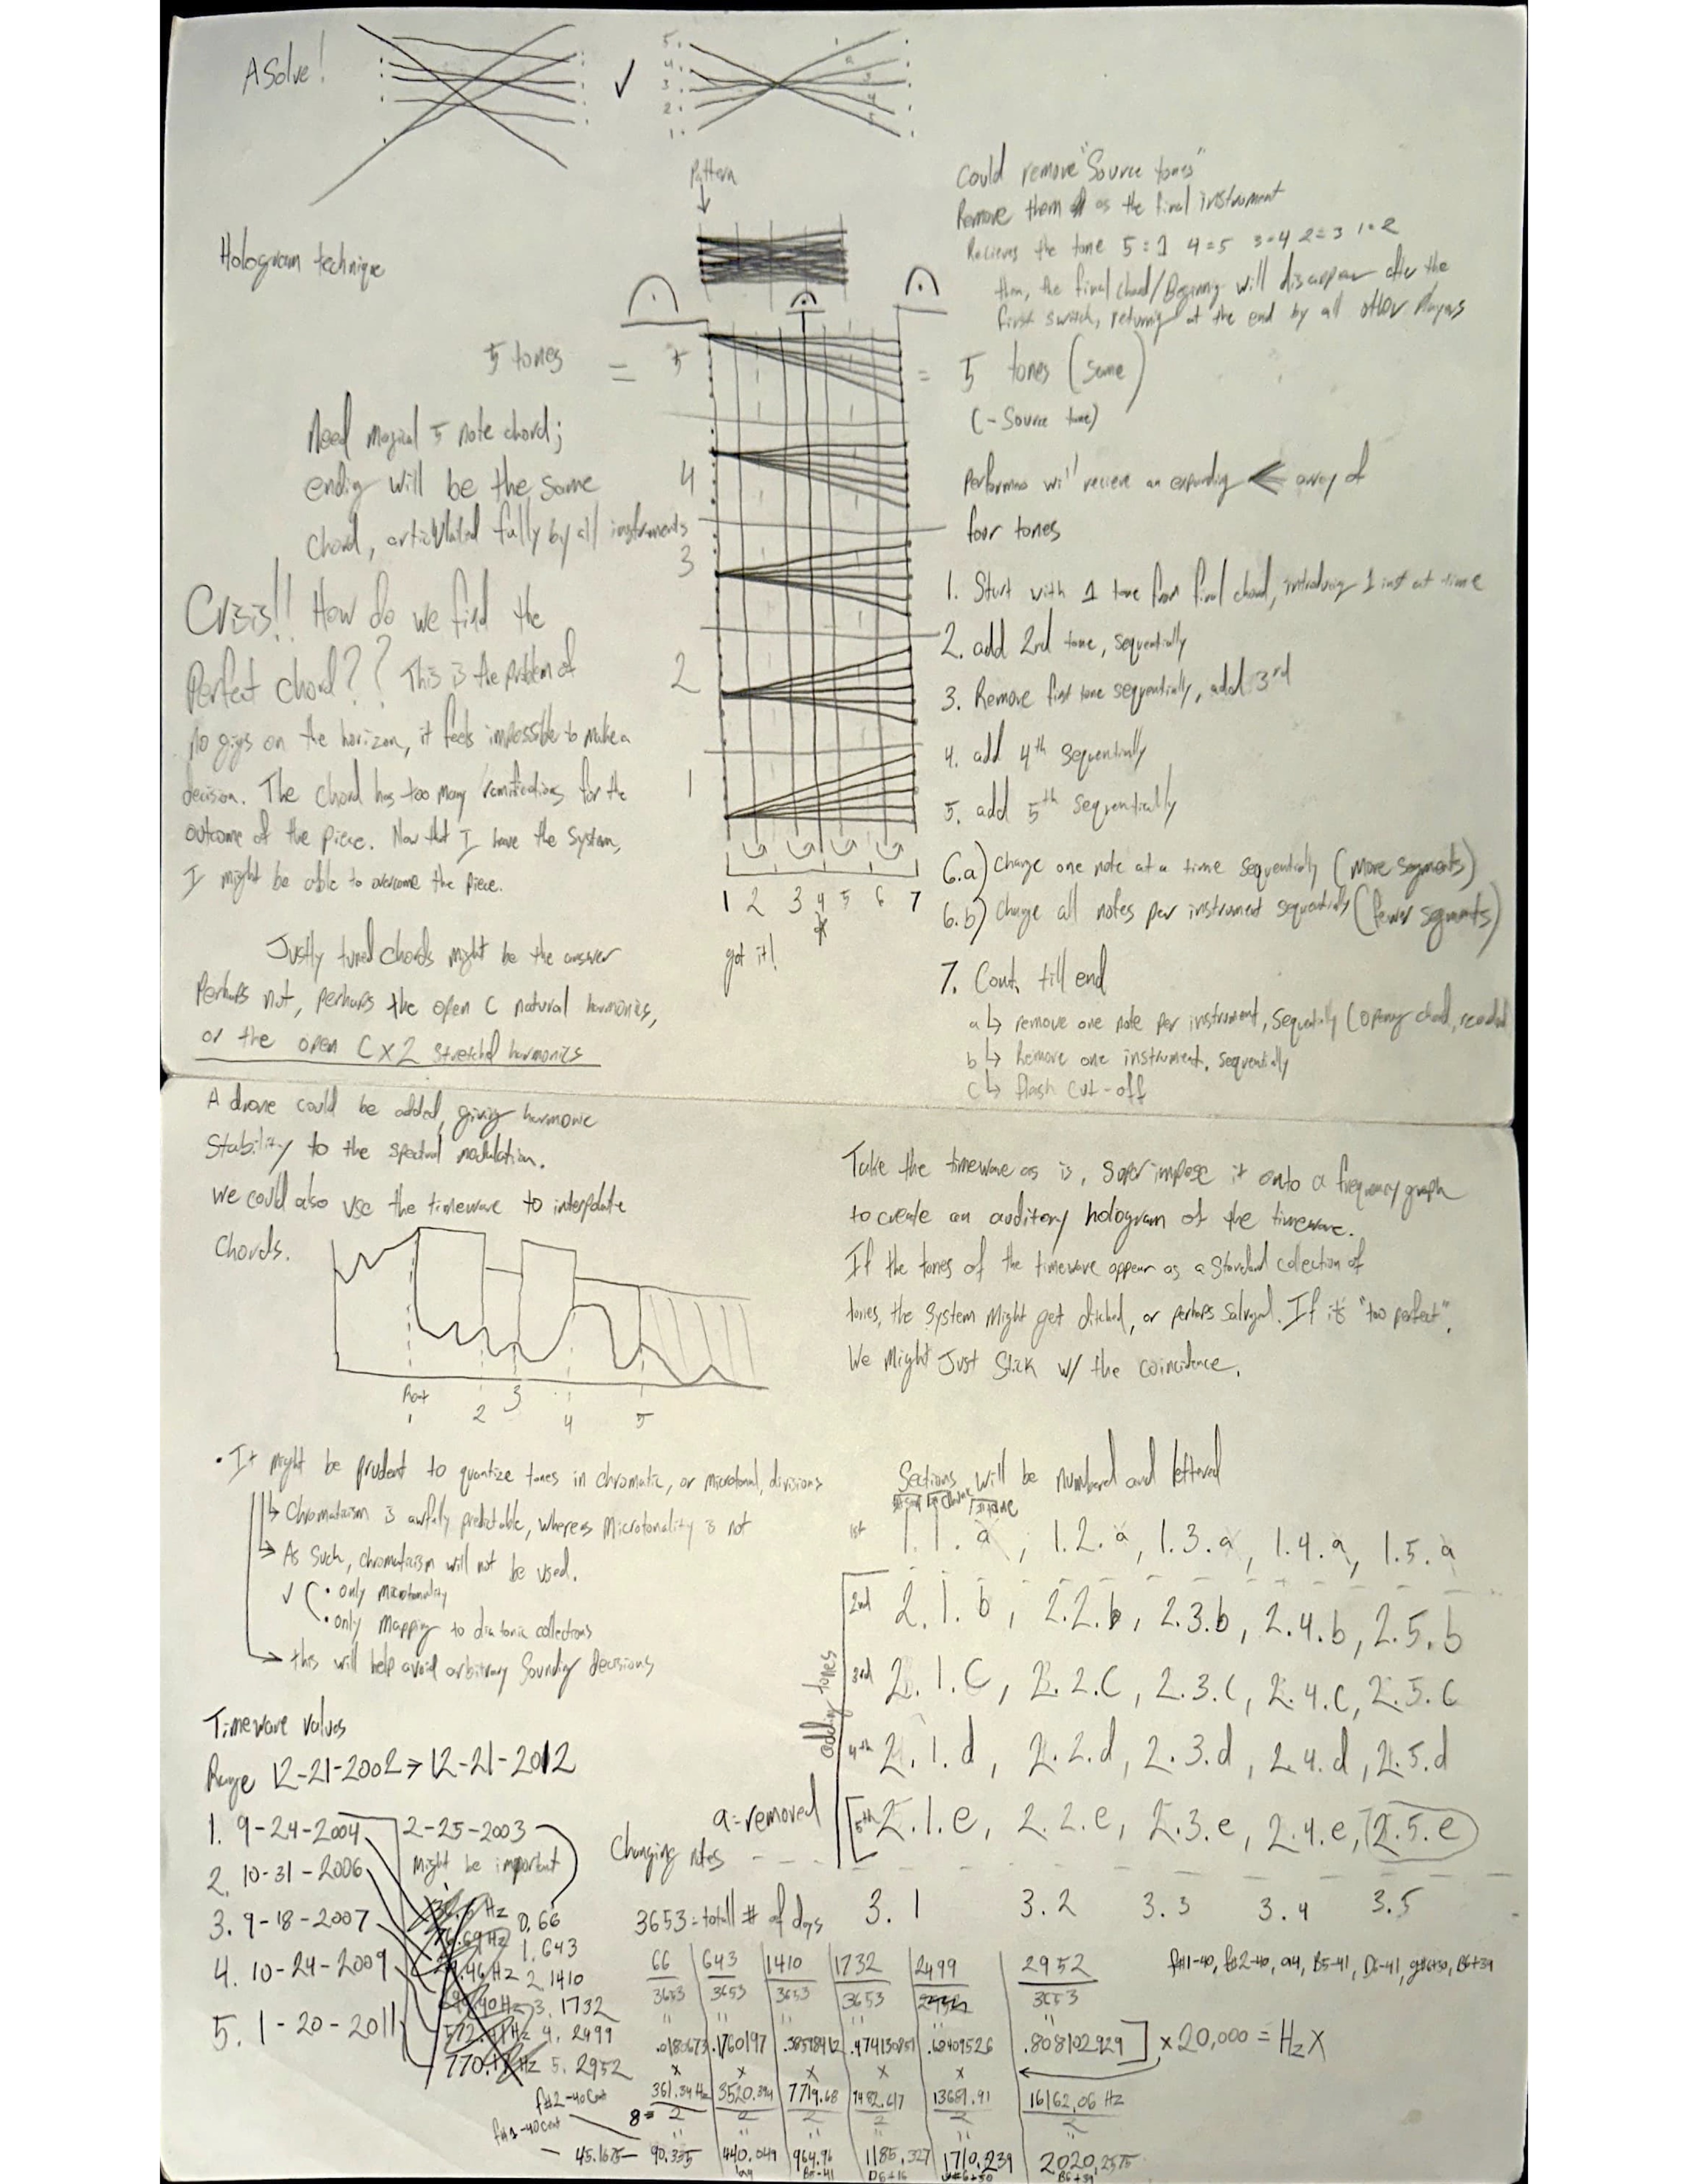 A Solve!
5.
4.
3.
2.
1.
Pattern
Hologram technique
Could remove "Source tones"
Remove them as the final instrument
Recieves the tone 5=1 4=5 3=4 2=3 1=2
then, the final chord/Beginning will disappear after the
first switch, returning at the end by all other players
5 tones = 5
= 5 tones (same)
(- Source tone)
Need magical 5 note chord;
ending will be the same
chord, articulated fully by all instruments
4
3
2
1
Performers will recieve an expanding < array of
four tones
Crisis!! How do we find the
Perfect chord?? This is the problem of
no gigs on the horizon, it feels impossible to make a
decision. The chord has too many ramifications for the
outcome of the piece. Now that I have the System,
I might be able to overcome the piece.
1. Start with 1 tone from final chord, introducing 1 inst at time
2. add 2nd tone, sequentially
3. Remove first tone sequentially, add 3rd
4. add 4th sequentially
5. add 5th sequentially
6.a) Change one note at a time sequentially (More segments)
6.b) Change all notes per instrument sequentially (fewer segments)
7. Cont. till end
a↳ remove one note per instrument, sequentially (opening chord,
b↳ Remove one instrument, sequentially
c↳ flash cut-off
1 2 3 4 5 6 7
got it!
Justly tuned chords might be the answer
Perhaps not, perhaps the open C natural harmonics,
or the open C x 2 stretched harmonics
A drone could be added, giving harmonic
Stability to the spectral modulation.
We could also use the timewave to interpolate
Chords.
1 2 3 4 5
Take the timewave as is, superimpose it onto a frequency graph
to create an auditory hologram of the timewave.
If the tones of the timewave appear as a standard collection of
tones, the System might get ditched, or perhaps salvaged. If it's "too perfect",
We might Just Stick w/ the coincidence.
• It might be prudent to quantize tones in chromatic, or microtonal, divisions
↳ Chromatism is awfully predictable, whereas Microtonality is not
↳ As such, chromaticism will not be used.
✓ ( • only microtonality
• only mapping to diatonic collections
↳ this will help avoid arbitrary Sounding decisions
Sections will be numbered and lettered
1st 1.1.a, 1.2.a, 1.3.a, 1.4.a, 1.5.a
2nd 2.1.b, 2.2.b, 2.3.b, 2.4.b, 2.5.b
3rd 2.1.C, 2.2.C, 2.3.C, 2.4.C, 2.5.C
4th 2.1.d, 2.2.d, 2.3.d, 2.4.d, 2.5.d
5th 2.1.e, 2.2.e, 2.3.e, 2.4.e, 2.5.e
adding tones
a=removed
Changing notes
3.1 3.2 3.3 3.4 3.5
Timewave values
Range 12-21-2002 → 12-21-2012
1. 9-24-2004
2. 10-31-2006
3. 9-18-2007
4. 10-24-2009
5. 1-20-2011
2-25-2003
Might be important
0.66
1. 643
2. 1410
3. 1732
4. 2499
5. 2952
3653 = total # of days
66 643 1410 1732 2499 2952
3653 3653 3653 3653 3653
f#1-40, f#2-40, a4, B5-41, D6-41, g#6+30, B6+39
.0180673 .1760197 .38598412 .474130851 .68409526 .808102929] x 20,000 = Hz X
361.34 Hz 3520.394 7719.68 9482.617 13681.91 16162.06 Hz
8= 2 2 2 2 2 2
f#2-40cent
f#1-40cent
45.1675 90.335 440.049 964.96 1185.327 1710.239 2020.2575
B5-41 D6+16 B6+39